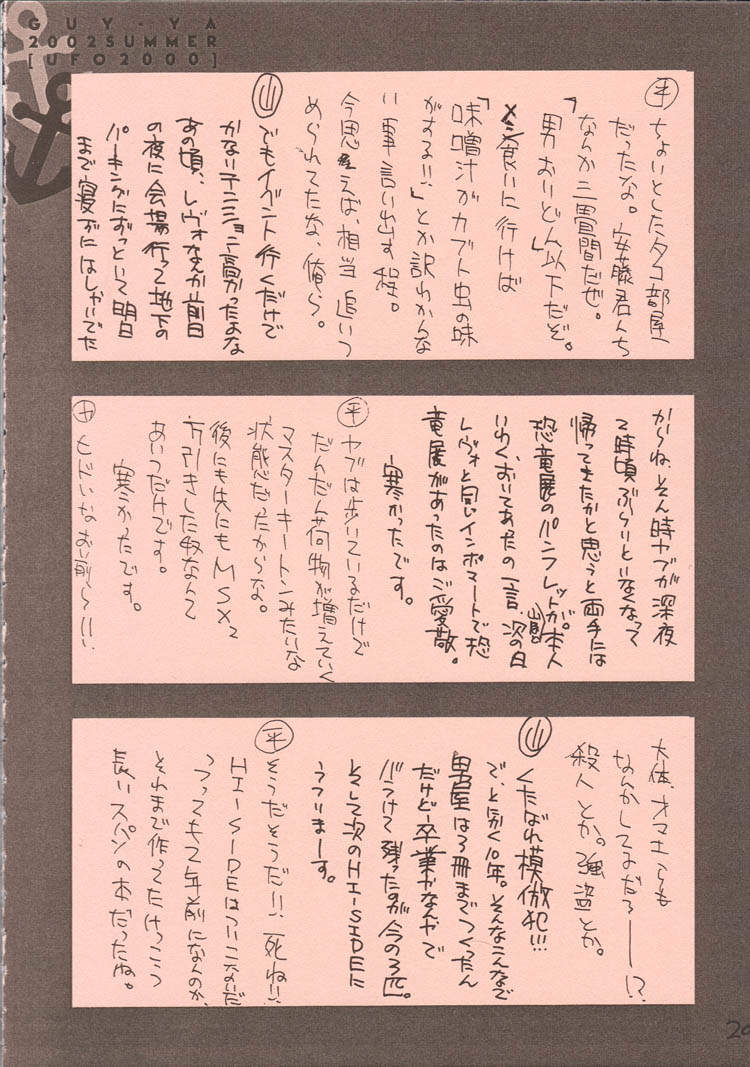 GUY-YA
2002SUMMER
[UFO2000]
平 ちょいとしたタコ部屋
だったな。安藤君んち
なんか三畳間だぜ。
「男おいどん以下だぞ。」
メシ食いに行けば
「味噌汁がカブト虫の味
がする!!」とか訳わかんな
い事言い出す程。
今思えば、相当追いつ
められてたな、俺ら。
山 でもイベント行くだけで
かなりテンション高かったよな
あの頃、レヴォなんか前日
の夜に会場行って地下の
パーキングにずっといて明日
まで寝ずにはしゃいでた
がらね、そん時ヤブが深夜
2時頃ぶらりといなくなって
帰ってきたかと思うと両手には
恐竜展のパンフレットが。本人
いわく、おいてあたの一言、次の日
レヴォと同じインポマートで恐
竜展があったのはご愛敬。
寒かったです。
平 ヤブは歩いているだけで
だんだん荷物が増えていく
マスターキートンみたいな
状態だったからな。
後にも先にもMSX2
万引きした奴なんて
あいつだけです。
寒かったです。
ヤ ヒドいなおい前ら!!!
大体、オマエらも
なんかしてまだろーー!?
殺人とか。強盗とか。
山 くたばれ模倣犯!!!
で、と別く10年。そんなこんなで
男屋は3冊までつくったん
だけど卒業やなんやで
バラけて残ったのが今の3匹。
そして次のHI-SIDEに
うつりまーす。
平 そうだそうだ!!死ね!!
HI-SIDEはついこないだ
つってもって2年前になんのか、
それまで作ってたけっこう
長いスパンの本だったね。